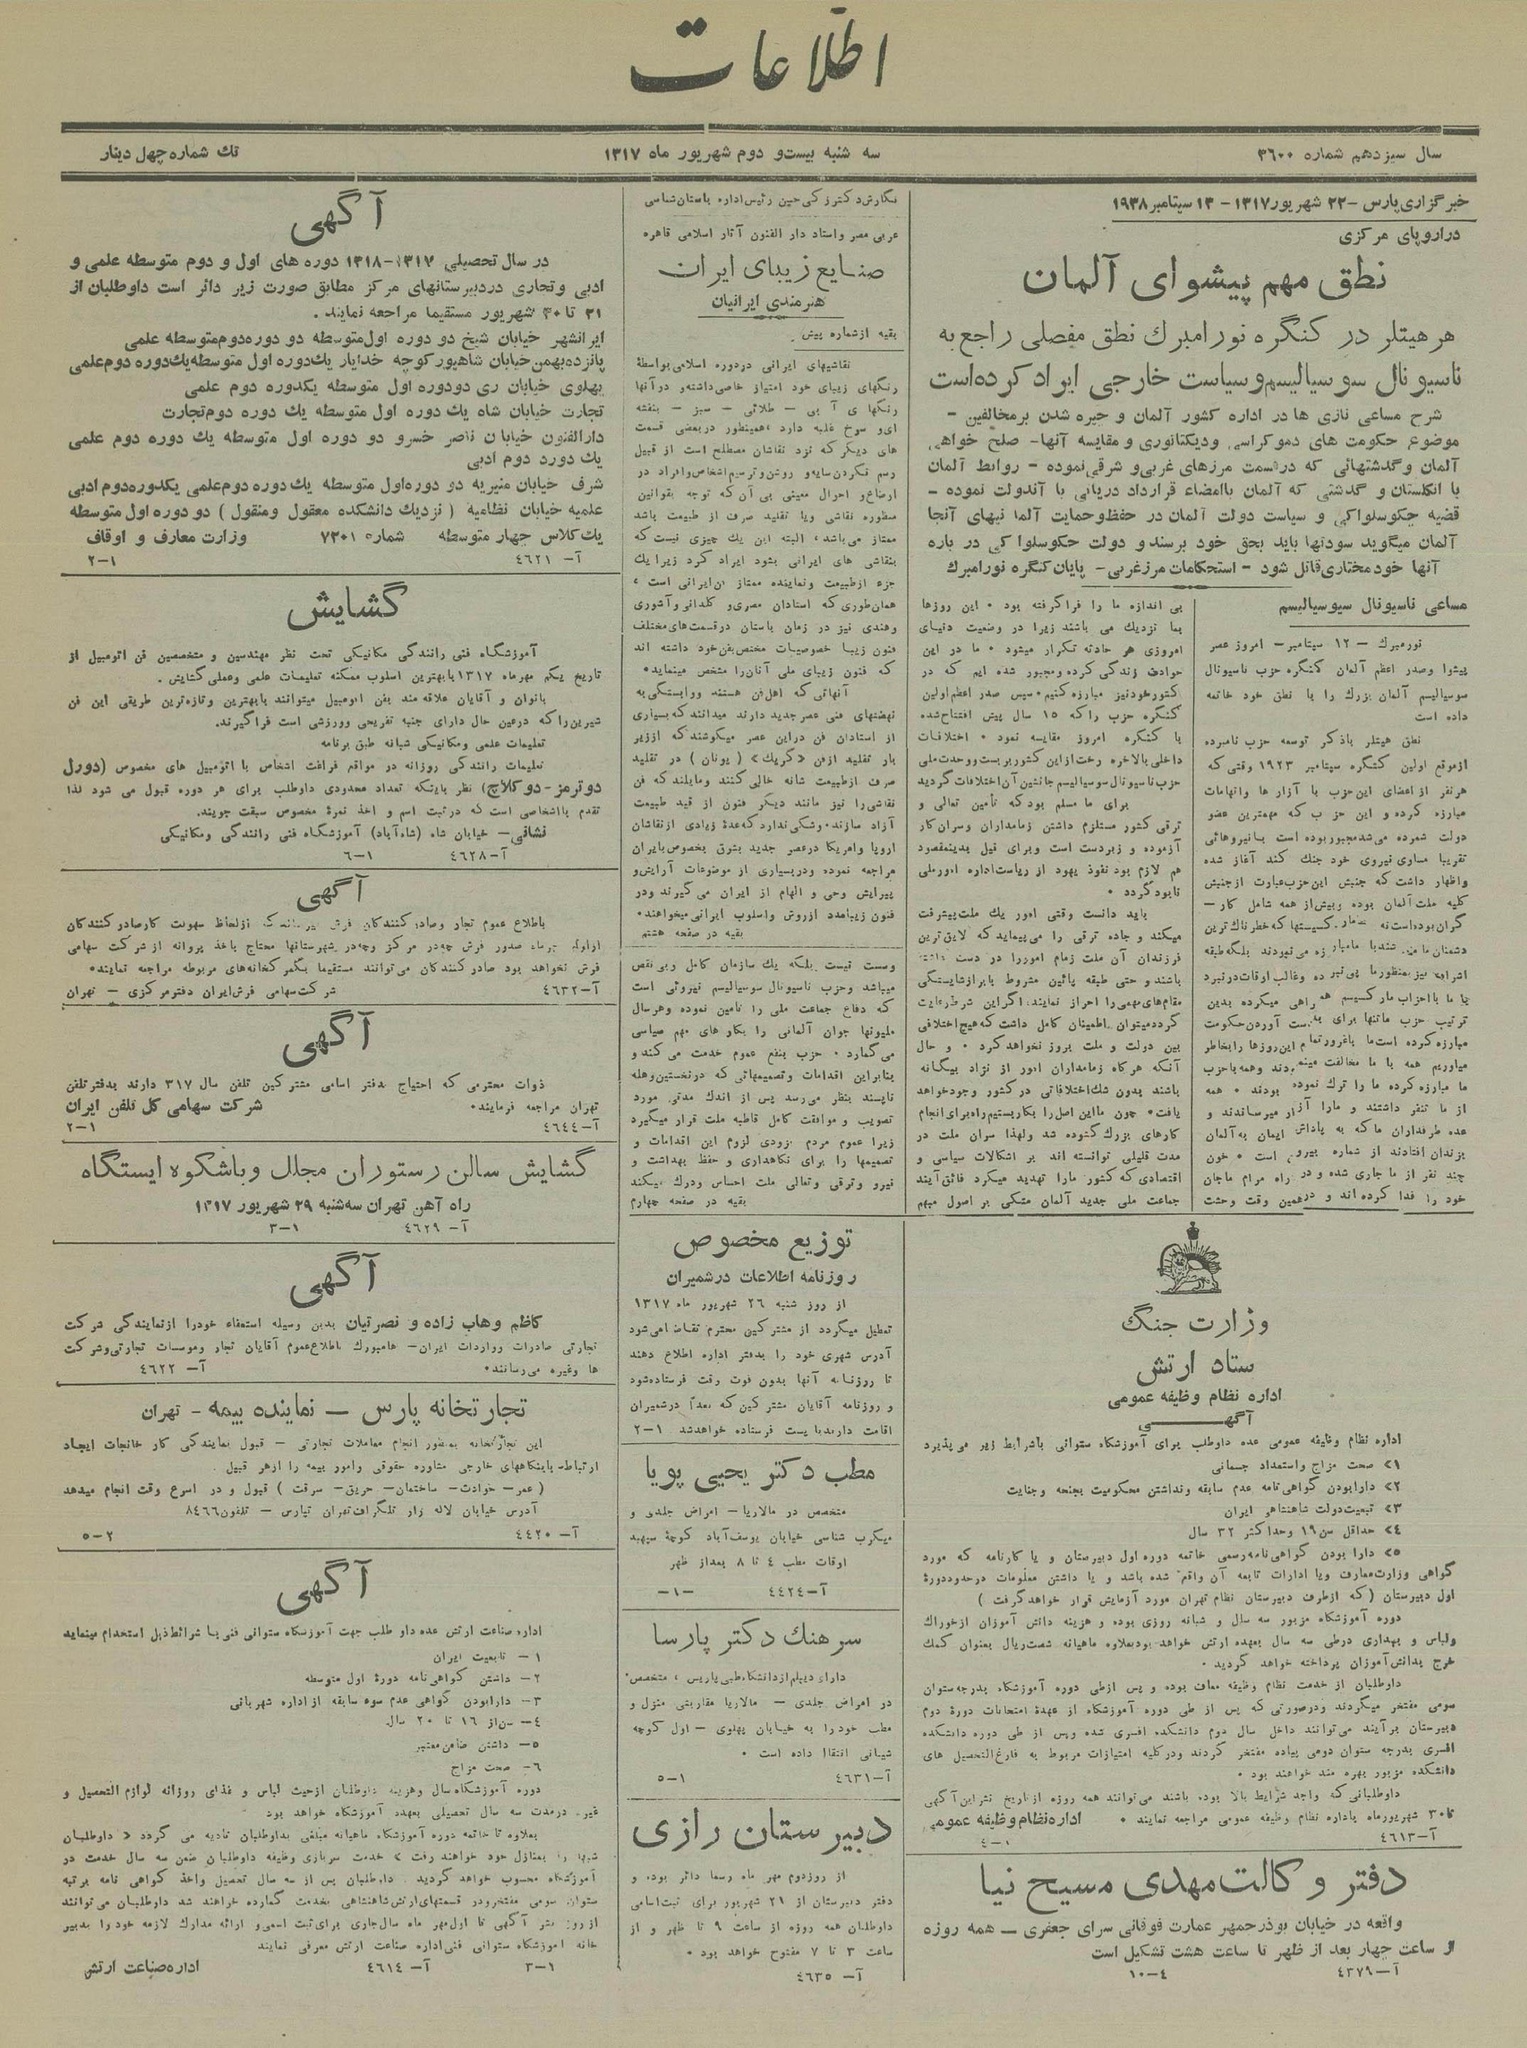 اطلاعات
سال سیزدهم شماره ۳۶۰۰
سه شنبه بیست و دوم شهریور ماه ۱۳۱۷
تك شماره چهل دینار
خبرگزاری پارس - ۲۲ شهریور ۱۳۱۷ - ۱۳ سپتامبر ۱۹۳۸
در اروپای مرکزی
نطق مهم پیشوای آلمان
هر هیتلر در کنگره نورامبرك نطق مفصلی راجع به
ناسیونال سوسیالیسم و سیاست خارجی ایراد کرده است
شرح مساعی نازی ها در اداره کشور آلمان و چیره شدن بر مخالفین -
موضوع حکومت های دموکراسی و دیکتاتوری و مقایسه آنها - صلح خواهی
آلمان و گذشتهائی که در قسمت مرزهای غربی و شرقی نموده - روابط آلمان
با انگلستان و گذشتی که آلمان با امضاء قرارداد دریائی با آندولت نموده -
قضیه چکوسلواکی و سیاست دولت آلمان در حفظ و حمایت آلمانیهای آنجا
آلمان میگوید سودتها باید بحق خود برسند و دولت چکوسلواکی در باره
آنها خود مختاری قائل شود - استحکامات مرز غربی - پایان کنگره نورامبرك
مساعی ناسیونال سیوسیالیسم
نورمبرك - ۱۲ سپتامبر - امروز عصر
پیشوا و صدر اعظم آلمان کنگره حزب ناسیونال
سوسیالیسم آلمان بزرك را با نطق خود خاتمه
داده است
نطق هیتلر با ذکر توسعه حزب نامبرده
از موقع اولین کنگره سپتامبر ۱۹۲۳ وقتی که
هر نفر از اعضای این حزب با آزار ها و اتهامات
مبارزه کرده و این حزب که مهمترین عضو
دولت شمرده می شد مجبور بوده است با نیروهائی
تقریبا مساوی نیروی خود جنك کند آغاز شده
و اظهار داشت که جنبش این حزب عبارت از جنبش
کلیه ملت آلمان بوده و بیش از همه شامل کار -
گران بوده است نه
چند نفر از ما جاری شده و در راه مرام ما جان
خود را فدا کرده اند و در همین وقت وحشت
بی اندازه ما را فرا گرفته بود • این روزها
بما نزدیك می باشند زیرا در وضعیت دنیای
امروزی هر حادثه تکرار میشود • ما در این
حوادث زندگی کرده و مجبور شده ایم که در
کشور خود نیز مبارزه کنیم • سپس صدر اعظم اولین
کنگره حزب را که ۱۵ سال پیش افتتاح شده
با کنگره امروز مقایسه نمود • اختلافات
داخلی بالاخره رخت از این کشور بربست و وحدت ملی
حزب ناسیونال سوسیالیسم جانشین آن اختلافات گردید
برای ما مسلم بود که تأمین تعالی و
ترقی کشور مستلزم داشتن زمامداران و سران کار
آزموده و زبردست است و برای نیل بدین مقصود
هم لازم بود نفوذ یهود از ریاست اداره امور ملی
نابود گردد •
باید دانست وقتی امور یك ملت پیشرفت
میکند و جاده ترقی را می پیماید که لایق ترین
فرزندان آن ملت زمام امور را در دست داشته
باشند و حتی طبقه پائین مشروط بابراز شایستگی
مقام های مهمی را احراز نمایند • اگر این شرط رعایت
گردد میتوان اطمینان کامل داشت که هیچ اختلافی
بین دولت و ملت بروز نخواهد کرد • و حال
آنکه هر گاه زمامداران امور از نژاد بیگانه
باشند بدون شك اختلافاتی در کشور وجود خواهد
یافت • چون ما این اصل را بکار بستیم راه برای انجام
کارهای بزرك گشوده شد و لهذا سران ملت در
مدت قلیلی توانسته اند بر اشکالات سیاسی و
اقتصادی که کشور ما را تهدید میکرد فائق آیند
جماعت ملی جدید آلمان متکی بر اصول مبهم
نگارش دکتر زکی حسن رئیس اداره باستان شناسی
عربی مصر و استاد دار الفنون آثار اسلامی قاهره
صنایع زیبای ایران
هنرمندی ایرانیان
بقیه از شماره پیش
نقاشیهای ایرانی در دوره اسلامی بواسطهٔ
رنگهای زیبای خود امتیاز خاصی داشته و در آنها
رنگهای آبی - طلائی - سبز - بنفشه
ای و سرخ غلبه دارد • همینطور در بعضی قسمت
های دیگر که نزد نقاشان مصطلح است از قبیل
رسم نکردن سایه و روشن و ترسیم اشخاص و افراد در
اوضاع و احوال معینی بی آن که توجه بقوانین
منظوره نقاشی و یا تقلید صرف از طبیعت باشد
ممتاز می باشد • البته این یك چیزی نیست که
بنقاشی های ایرانی بشود ایراد کرد زیرا یك
جزء از طبیعت و نماینده ممتاز فن ایرانی است •
همان طوری که استادان مصری و کلدانی و آشوری
و هندی نیز در زمان باستان در قسمت های مختلف
فنون زیبا خصوصیات مختص بفن خود داشته اند
که فنون زیبای ملی آنان را مشخص مینماید •
آنهائی که اهل فن هستند و وابستگی به
نهضتهای فنی عصر جدید دارند میدانند که بسیاری
از استادان فن در این عصر میکوشند که از زیر
بار تقلید از فن «گریك» ( یونان ) در تقلید
صرف از طبیعت شانه خالی کنند و مایلند که فن
نقاشی را نیز مانند دیگر فنون از قید طبیعت
آزاد سازند • و شکی ندارد که عدهٔ زیادی از نقاشان
اروپا و امریکا در عصر جدید بشرق بخصوص بایران
مراجعه نموده و در بسیاری از موضوعات آرایش و
پیرایش وحی و الهام از ایران می گیرند و در
فنون زیبا مدد از روش و اسلوب ایرانی میخواهند •
بقیه در صفحه هشتم
و سست نیست بلکه یك سازمان کامل و بی نقص
میباشد و حزب ناسیونال سوسیالیسم نیروئی است
که دفاع جماعت ملی را تامین نموده و هر سال
ملیونها جوان آلمانی را بکار های مهم سیاسی
می گمارد • حزب بنفع عموم خدمت می کند و
بنابر این اقدامات و تصمیمهائی که در نخستین وهله
ناپسند بنظر می رسد پس از اندك مدتی مورد
تصویب و موافقت کامل قاطبه ملت قرار میگیرد
زیرا عموم مردم بزودی لزوم این اقدامات و
تصمیمها را برای نگاهداری و حفظ بهداشت و
نیرو و ترقی و تعالی ملت احساس و درك میکند
بقیه در صفحه چهارم
وزارت جنگ
ستاد ارتش
اداره نظام وظیفه عمومی
آگهی
اداره نظام وظیفه عمومی عده داوطلب برای آموزشگاه ستوانی با شرایط زیر می پذیرد
۱> صحت مزاج و استعداد جسمانی
۲> دارا بودن گواهی نامه عدم سابقه و نداشتن محکومیت بجنحه و جنایت
۳> تبعیت دولت شاهنشاهی ایران
٤> حداقل سن ۱۹ و حداکثر ۳۲ سال
۵> دارا بودن گواهی نامه رسمی خاتمه دوره اول دبیرستان و یا کارنامه که مورد
گواهی وزارت معارف و یا ادارات تابعه آن واقع شده باشد و یا داشتن معلومات در حدود دورهٔ
اول دبیرستان ( که از طرف دبیرستان نظام تهران مورد آزمایش قرار خواهد گرفت )
دوره آموزشگاه مزبور سه سال و شبانه روزی بوده و هزینه دانش آموزان از خوراك
و لباس و بهداری در طی سه سال بعهده ارتش خواهد بود بعلاوه ماهیانه شصت ریال بعنوان کمك
خرج بدانش آموزان پرداخته خواهد گردید •
داوطلبان از خدمت نظام وظیفه معاف بوده و پس از طی دوره آموزشگاه بدرجه ستوان
سومی مفتخر میگردند و در صورتی که پس از طی دوره آموزشگاه از عهدهٔ امتحانات دورهٔ دوم
دبیرستان برآیند می توانند داخل سال دوم دانشکده افسری شده و پس از طی دوره دانشکده
افسری بدرجه ستوان دومی پیاده مفتخر گردند و در کلیه امتیازات مربوط به فارغ التحصیل های
دانشکده مزبور بهره مند خواهند بود •
داوطلبانی که واجد شرایط بالا بوده باشند می توانند همه روزه از تاریخ نشر این آگهی
تا ۳۰ شهریور ماه باداره نظام وظیفه عمومی مراجعه نمایند • اداره نظام وظیفه عمومی
آ - ٤٦١٣ ١-٤
دفتر وکالت مهدی مسیح نیا
واقعه در خیابان بوذرجمهر عمارت فوقانی سرای جعفری - همه روزه
از ساعت چهار بعد از ظهر تا ساعت هشت تشکیل است
آ - ٤٣٧٩ ٤-١٠
توزیع مخصوص
روزنامه اطلاعات در شمیران
از روز شنبه ۲۶ شهریور ماه ۱۳۱۷
تعطیل میگردد از مشترکین محترم تقاضا می شود
آدرس شهری خود را بدفتر اداره اطلاع دهند
تا روزنامه آنها بدون فوت وقت فرستاده شود
و روزنامه آقایان مشترکین که بعداً در شمیران
اقامت دارند با پست فرستاده خواهد شد ۱-۲
مطب دکتر یحیی پویا
متخصص در مالاریا - امراض جلدی و
میکرب شناسی خیابان یوسف آباد کوچهٔ سپهبد
اوقات مطب ٤ تا ۸ بعد از ظهر
آ - ٤٤٢٤ -١-
سرهنك دکتر پارسا
دارای دیپلم از دانشکده طبی پاریس ، متخصص
در امراض جلدی - مالاریا مقاربتی منزل و
مطب خود را به خیابان پهلوی - اول کوچه
شیبانی انتقال داده است •
آ - ٤٦٣١ ١-٥
دبیرستان رازی
از روز دوم مهر ماه رسما دائر بوده و
دفتر دبیرستان از ۲۱ شهریور برای ثبت اسامی
داوطلبان همه روزه از ساعت ۹ تا ظهر و از
ساعت ۳ تا ۷ مفتوح خواهد بود •
آ - ٤٦٣٥
آگهی
در سال تحصیلی ۱۳۱۷-۱۳۱۸ دوره های اول و دوم متوسطه علمی و
ادبی و تجاری در دبیرستانهای مرکز مطابق صورت زیر دائر است داوطلبان از
۲۱ تا ۳۰ شهریور مستقیما مراجعه نمایند .
ایرانشهر خیابان شیخ دو دوره اول متوسطه دو دوره دوم متوسطه علمی
پانزده بهمن خیابان شاهپور کوچه خدایار یك دوره اول متوسطه یك دوره دوم علمی
پهلوی خیابان ری دو دوره اول متوسطه یکدوره دوم علمی
تجارت خیابان شاه یك دوره اول متوسطه یك دوره دوم تجارت
دارالفنون خیابان ناصر خسرو دو دوره اول متوسطه یك دوره دوم علمی
یك دوره دوم ادبی
شرف خیابان منیریه دو دوره اول متوسطه یك دوره دوم علمی یکدوره دوم ادبی
علمیه خیابان نظامیه ( نزدیك دانشکده معقول و منقول ) دو دوره اول متوسطه
یك کلاس چهار متوسطه شماره ۷۳۰۱ وزارت معارف و اوقاف
آ - ٤٦٢١ ١-٢
گشایش
آموزشگاه فنی رانندگی مکانیکی تحت نظر مهندسین و متخصصین فن اتومبیل از
تاریخ یکم مهر ماه ۱۳۱۷ با بهترین اسلوب ممکنه تعلیمات علمی و عملی گشایش .
بانوان و آقایان علاقه مند بفن اتومبیل میتوانند با بهترین و تازه ترین طریقی این فن
شیرین را که در عین حال دارای جنبه تفریحی و ورزشی است فرا گیرند.
تعلیمات علمی و مکانیکی شبانه طبق برنامه
تعلیمات رانندگی روزانه در مواقع فراغت اشخاص با اتومبیل های مخصوص (دورل
دوترمز - دوکلاچ) نظر باینکه تعداد محدودی داوطلب برای هر دوره قبول می شود لذا
تقدم با اشخاصی است که در ثبت اسم و اخذ نمرهٔ مخصوص سبقت جویند.
نشانی - خیابان شاه (شاه آباد) آموزشگاه فنی رانندگی و مکانیکی
آ - ٤٦٢٨ ١-٦
آگهی
باطلاع عموم تجار و صادر کنندگان فرش از لحاظ سهولت کار صادر کنندگان
فرش نخواهد بود صادر کنندگان می توانند مستقیما بگمرکخانه های مربوطه مراجعه نمایند •
آ - ٤٦٣٢ شرکت سهامی فرش ایران دفتر مرکزی - تهران
آگهی
ذوات محترمی که احتیاج بدفتر اسامی مشترکین تلفن سال ۳۱۷ دارند بدفتر تلفن
تهران مراجعه فرمایند • شرکت سهامی کل تلفن ایران
آ - ٤٦٤٤ ١-٢
گشایش سالن رستوران مجلل و باشکوه ایستگاه
راه آهن تهران سه شنبه ۲۹ شهریور ۱۳۱۷
آ - ٤٦٢٩ ١-٣
آگهی
کاظم وهاب زاده و نصرتیان بدین وسیله استعفاء خود را از نمایندگی شرکت
تجارتی صادرات و واردات ایران - هامبورك باطلاع عموم آقایان تجار و موسسات تجارتی و شرکت
ها و غیره می رسانند • آ - ٤٦٢٢
تجارتخانه پارس - نماینده بیمه - تهران
این تجارتخانه بمنظور انجام معاملات تجارتی - قبول نمایندگی کارخانجات ایجاد
ارتباط با بنگاههای خارجی مشاوره حقوقی و امور بیمه را از هر قبیل .
( عمر - حوادث - ساختمان - حریق - سرقت ) قبول و در اسرع وقت انجام میدهد
آدرس خیابان لاله زار تلگراف تهران تپارس - تلفون ۸۴۶۶
آ - ٤٤٢٠ ٢-٥
آگهی
اداره صناعت ارتش عده داوطلب جهت آموزشگاه ستوانی فنی با شرائط ذیل استخدام مینماید
۱ - تابعیت ایران
۲ - داشتن گواهی نامه دورهٔ اول متوسطه
۳ - دارا بودن گواهی عدم سوء سابقه از اداره شهربانی
٤ - سن از ۱۶ تا ۲۰ سال.
۵ - داشتن ضامن معتبر
۶ - صحت مزاج
دوره آموزشگاه سال و هزینه داوطلبان از حیث لباس و غذای روزانه لوازم التحصیل و
غیره در مدت سه سال تحصیلی بعهده آموزشگاه خواهد بود
بعلاوه تا خاتمه دوره آموزشگاه ماهیانه مبلغی بداوطلبان تادیه می گردد « داوطلبان
شبها را بمنازل خود خواهند رفت » خدمت سربازی وظیفه داوطلبان ضمن سه سال خدمت در
آموزشگاه محسوب خواهد گردید . داوطلبان پس از سه سال تحصیل و اخذ گواهی نامه برتبه
ستوان سومی مفتخر و در قسمتهای ارتش شاهنشاهی بخدمت گمارده خواهند شد داوطلبان می توانند
از روز نشر آگهی تا اول مهر ماه سال جاری برای ثبت اسم و ارائه مدارك لازمه خود را بدبیر
خانه آموزشگاه ستوانی فنی اداره صناعت ارتش معرفی نمایند
۱-۳ آ - ٤٦١٤ اداره صناعت ارتش